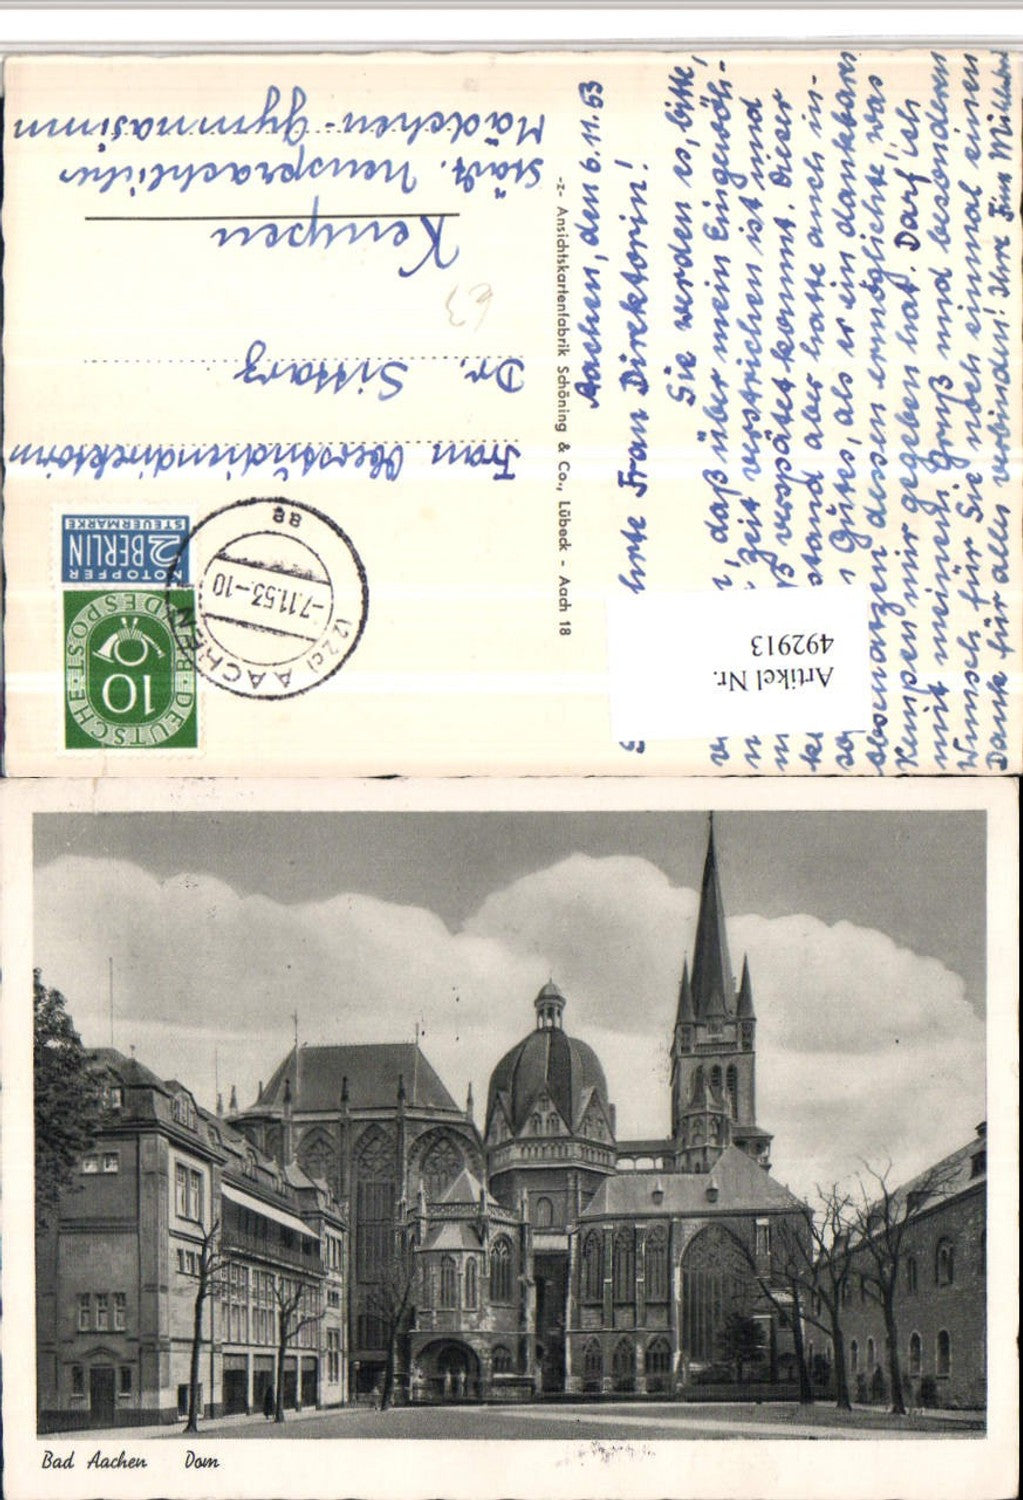 Aachen, den 6.11.53
Frau Direktorin!
Sie werden es, bitte,
, daß über mein Eingewöh-
Zeit verstrichen ist und
verspätet kommt. Dieser
stand aber hatte auch in-
Gutes, als er ein dankbares
dessen ermöglichte, was
Kempen mir gegeben hat. Darf ich
mit meinem Gruß und besonderen
Wunsch für Sie noch einmal einen
Dank für alles verbinden! Ihre
-z- Ansichtskartenfabrik Schöning & Co., Lübeck - Aach 18
Artikel Nr.
492913
DEUTSCHE BUNDESPOST
10
NOTOPFER
2 BERLIN
STEUERMARKE
(22c) AACHEN
-7.11.53.-10
ae
Frau Oberstudiendirektorin
Dr. Sittarz
63
Kempen
Städt. Neusprachliches
Mädchen-Gymnasium
Bad Aachen Dom